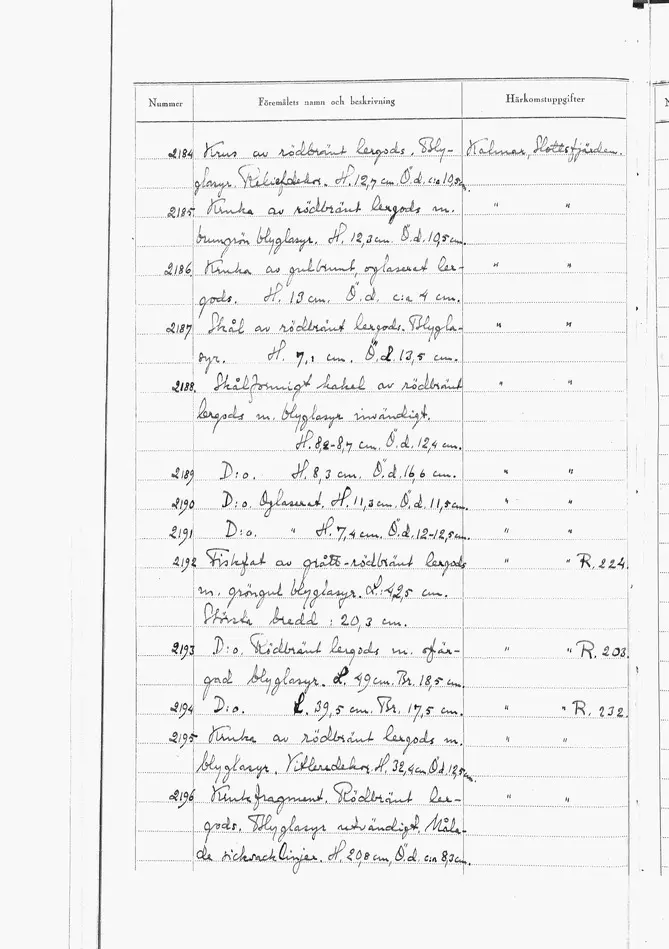 Nummer Föremålets namn och beskrivning Härkomstuppgifter
2184 Krus av rödbränt lergods. Bly- Kalmar, Slottsfjärden.
glasyr. Reliefdekor. H. 12,7 cm Ö.d. c:a 10,5 cm.
2185 Kruka av rödbränt lergods m. " "
brungrön blyglasyr. H. 12,3 cm. Ö.d. 10,5 cm.
2186 Kruka av gulbrunt, oglaserat ler- " "
gods. H. 13 cm. Ö.d. c:a 4 cm.
2187 Skål av rödbränt lergods. Blygla- " "
syr. H. 7,1 cm. Ö.d. 13,5 cm.
2188. Skålformigt kakel av rödbränt " "
lergods m. blyglasyr invändigt.
H. 8,2-8,7 cm. Ö.d. 12,4 cm.
2189 D:o. H. 8,3 cm. Ö.d. 16,6 cm. " "
2190 D:o. Oglaserat. H. 11,3 cm. Ö.d. 11,5 cm. " "
2191 D:o. " H. 7,4 cm. Ö.d. 12-12,5 cm. " "
2192 Fiskfat av grått-rödbränt lergods " " R. 224.
m. gröngul blyglasyr. L.: 42,5 cm.
Största bredd : 20,3 cm.
2193 D:o. Rödbränt lergods m. ofär- " " R. 203.
gad blyglasyr. L. 49 cm. Br. 18,5 cm.
2194 D:o. L. 39,5 cm. Br. 17,5 cm. " " R. 232.
2195 Kruka av rödbränt lergods m. " "
blyglasyr. Vitleredekor. H. 32,4 cm Ö.d. 12,5 cm.
2196 Krukfragment. Rödbränt ler- " "
gods. Blyglasyr utvändigt. Måla-
de sicksacklinjer. H. 20,8 cm, Ö.d. c:a 8,3 cm.